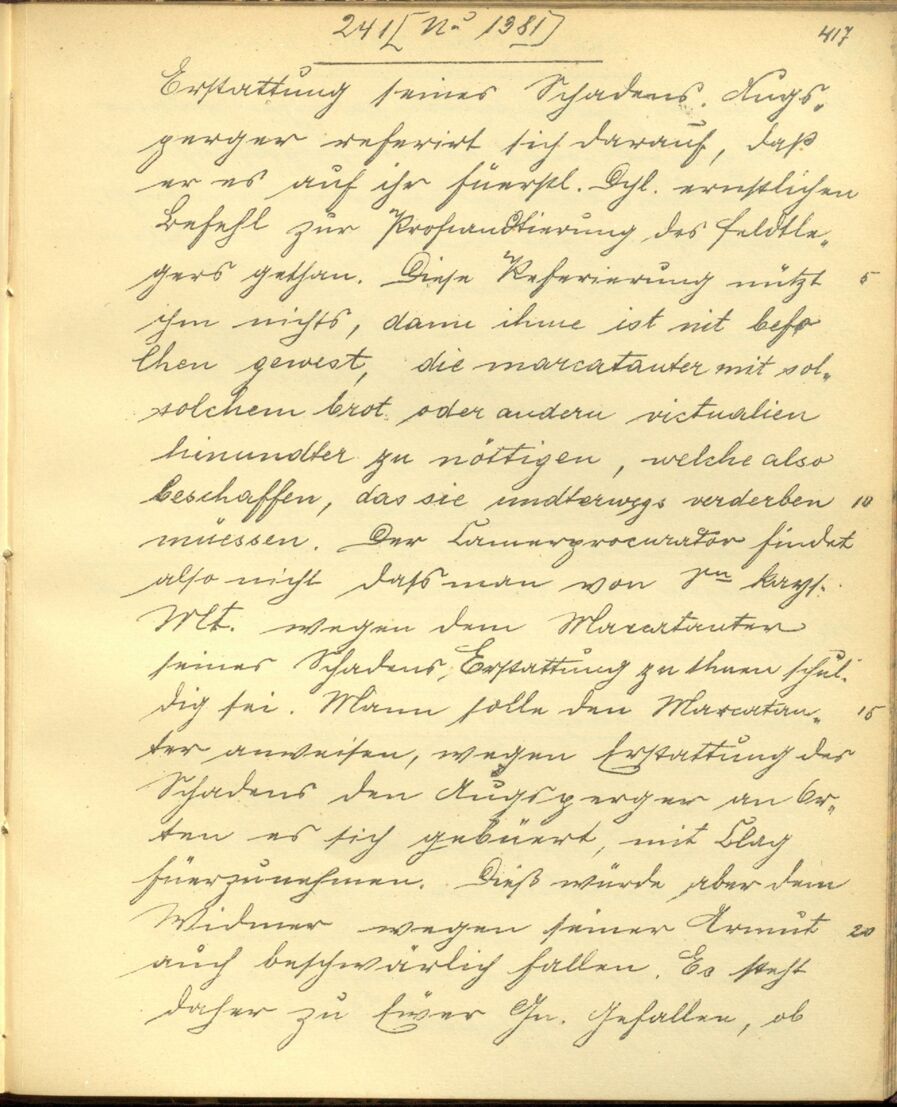 241 [Nro 1381]
417
Erstattung seines Schadens. Augs-
perger referirt sich darauf, daß
er es auf ihr Füerstl. Dchl. ernstlichen
Befehl zur Profiandtierung des Feldtle-
gers gethan. Diese Referierung nützt 5
ihm nichts, dann ihme ist nit befo
lhen gewest, die marcatanter mit sol-
solchem brot oder andern victualien
hinundter zu nöttigen, welche also
beschaffen, das sie undterwegs verderben 10
müessen. Der Camerprocurator findet
also nicht dass man von Rn kays.
Mt. wegen dem Marcatanter
seines Schadens Erstattung zu thuen schul-
dig sei. Mann solle den Marcatan- 15
ter anweisen, wegen Erstattung des
Schadens den Augsperger an Or-
ten es sich gebüert, mit Clag
füerzunehmen. Dieß würde aber dem
Widmer wegen seiner Armut 20
auch beschwärlich fallen. Es steht
daher zu Euer Gn. Gefallen, ob